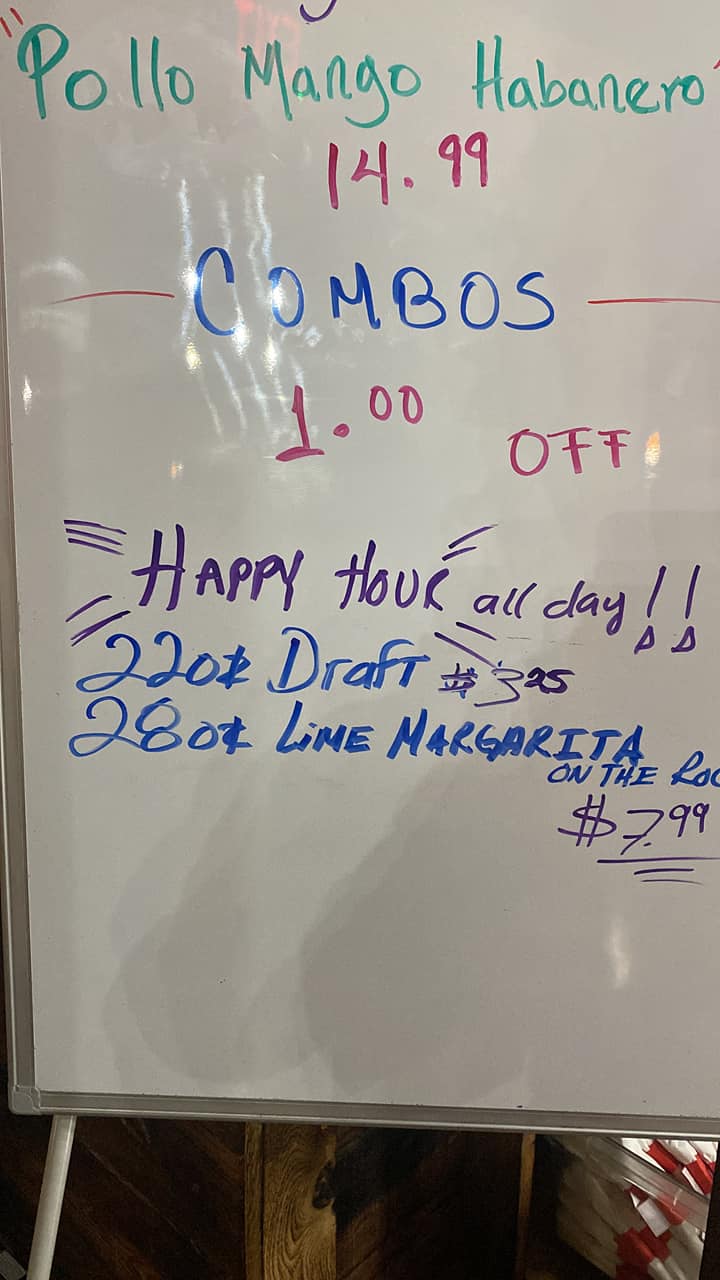 "Pollo Mango Habanero"
14.99
COMBOS
1.00 OFF
HAPPY HOUR all day!!
22oz Draft $3.25
28oz LIME MARGARITA
ON THE
$7.99